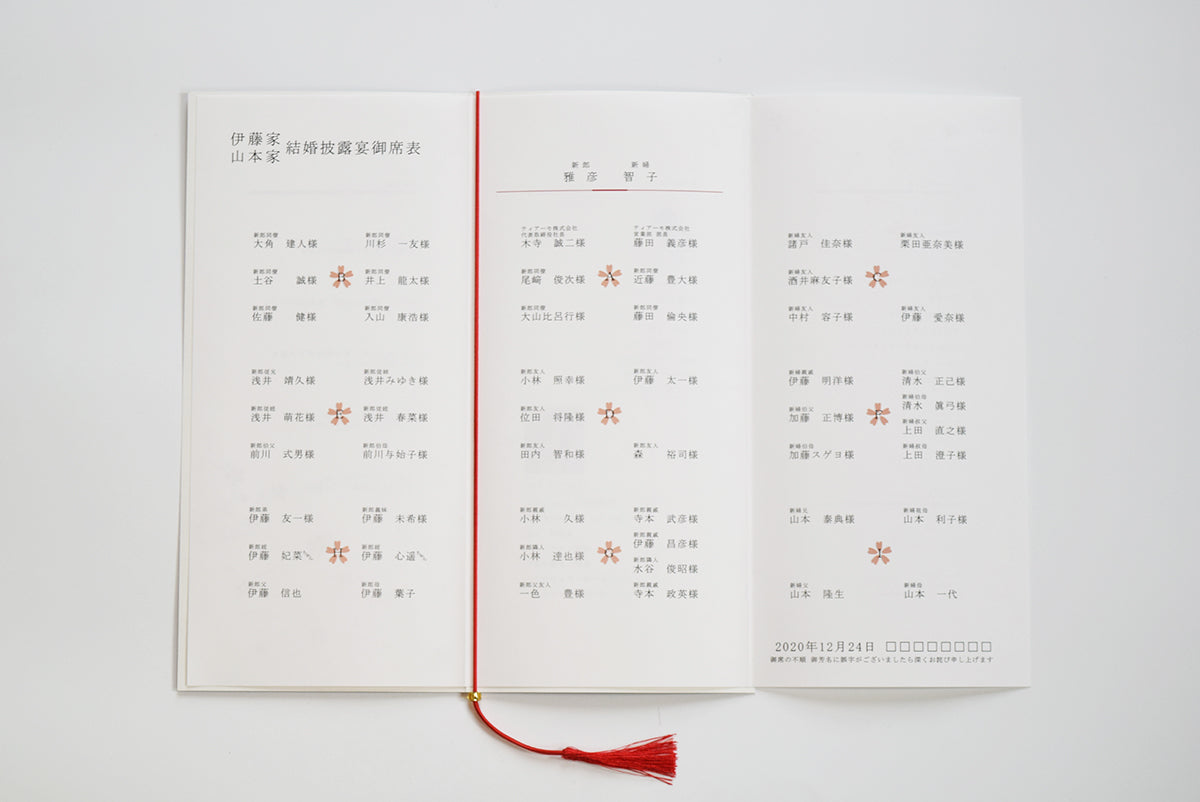 伊藤家
山本家
結婚披露宴御席表
新郎同僚
大角　建人様
新郎同僚
川杉　一友様
新郎同僚
土谷　誠様
B
新郎同僚
井上　龍太様
新郎同僚
佐藤　健様
新郎同僚
入山　康浩様
新郎従兄
浅井　靖久様
新郎従姉
浅井みゆき様
新郎従姪
浅井　萌花様
E
新郎従姪
浅井　春菜様
新郎伯父
前川　式男様
新郎伯母
前川与始子様
新郎弟
伊藤　友一様
新郎義妹
伊藤　未希様
新郎姪
伊藤　妃菜ちゃん
H
新郎姪
伊藤　心遥ちゃん
新郎父
伊藤　信也
新郎母
伊藤　葉子
新郎　新婦
雅彦　智子
ティアーモ株式会社
代表取締役社長
木寺　誠二様
ティアーモ株式会社
営業部 部長
藤田　義彦様
新郎同僚
尾﨑　俊次様
A
新郎同僚
近藤　豊大様
新郎同僚
大山比呂行様
新郎同僚
藤田　倫央様
新郎友人
小林　照幸様
新郎友人
伊藤　太一様
新郎友人
位田　将隆様
D
新郎友人
田内　智和様
新郎友人
森　裕司様
新郎親戚
小林　久様
新郎親戚
寺本　武彦様
新郎親戚
伊藤　昌彦様
新郎隣人
小林　達也様
G
新郎隣人
水谷　俊昭様
新郎父友人
一色　豊様
新郎親戚
寺本　政英様
新婦友人
諸戸　佳奈様
新婦友人
栗田亜奈美様
新婦友人
酒井麻友子様
C
新婦友人
中村　容子様
新婦友人
伊藤　愛奈様
新婦親戚
伊藤　明洋様
新婦伯父
清水　正己様
新婦伯母
清水　眞弓様
新婦伯父
加藤　正博様
F
新婦叔父
上田　直之様
新婦伯母
加藤スゲヨ様
新婦叔母
上田　澄子様
新婦兄
山本　泰典様
新婦祖母
山本　利子様
I
新婦父
山本　隆生
新婦母
山本　一代
2020年12月24日　□□□□□□□□
御席の不順 御芳名に誤字がございましたら深くお詫び申し上げます